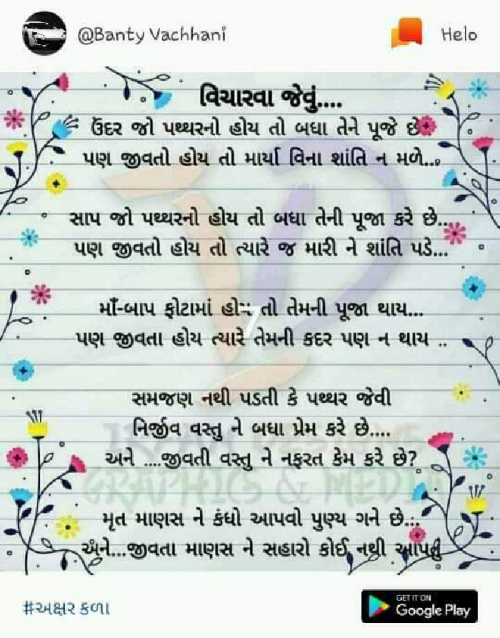 @Banty Vachhani
Helo
વિચારવા જેવું....
ઉંદર જો પથ્થરનો હોય તો બધા તેને પૂજે છે
પણ જીવતો હોય તો માર્યા વિના શાંતિ ન મળે...
સાપ જો પથ્થરનો હોય તો બધા તેની પૂજા કરે છે...
પણ જીવતો હોય તો ત્યારે જ મારી ને શાંતિ પડે...
માઁ-બાપ ફોટામાં હોય તો તેમની પૂજા થાય...
પણ જીવતા હોય ત્યારે તેમની કદર પણ ન થાય ..
સમજણ નથી પડતી કે પથ્થર જેવી
નિર્જીવ વસ્તુ ને બધા પ્રેમ કરે છે....
અને ....જીવતી વસ્તુ ને નફરત કેમ કરે છે?
GRAPHICS & MEDIA
મૃત માણસ ને કંધો આપવો પુણ્ય ગને છે...
અને...જીવતા માણસ ને સહારો કોઈ નથી આપતુ
#અક્ષર કળા
GET IT ON
Google Play